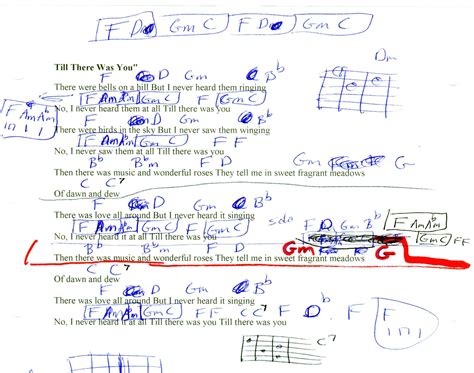 F D Gm C F D Gm C
Dm
Till There Was You"
F D Gm Bb
There were bells on a hill But I never heard them ringing
F Am Abm Gm C F Gm C
No, I never heard them at all Till there was you
F D Gm Bb
There were birds in the sky But I never saw them winging
F Am Abm Gm C F F
No, I never saw them at all Till there was you
Bb Bbm F D Gm G
Then there was music and wonderful roses They tell me in sweet fragrant meadows
C C7
Of dawn and dew
F D Gm Bb
There was love all around But I never heard it singing
F Am Abm Gm C F F
No, I never heard it at all Till there was you
solo F D Gm Bb F Am Abm
Gm C F F
Bb Bbm F D Gm G
Then there was music and wonderful roses They tell me in sweet fragrant meadows
C C7
Of dawn and dew
F D Gm Bb
There was love all around But I never heard it singing
F Am Abm Gm C F F C C7 F D F F
No, I never heard it at all Till there was you Till there was you
C7